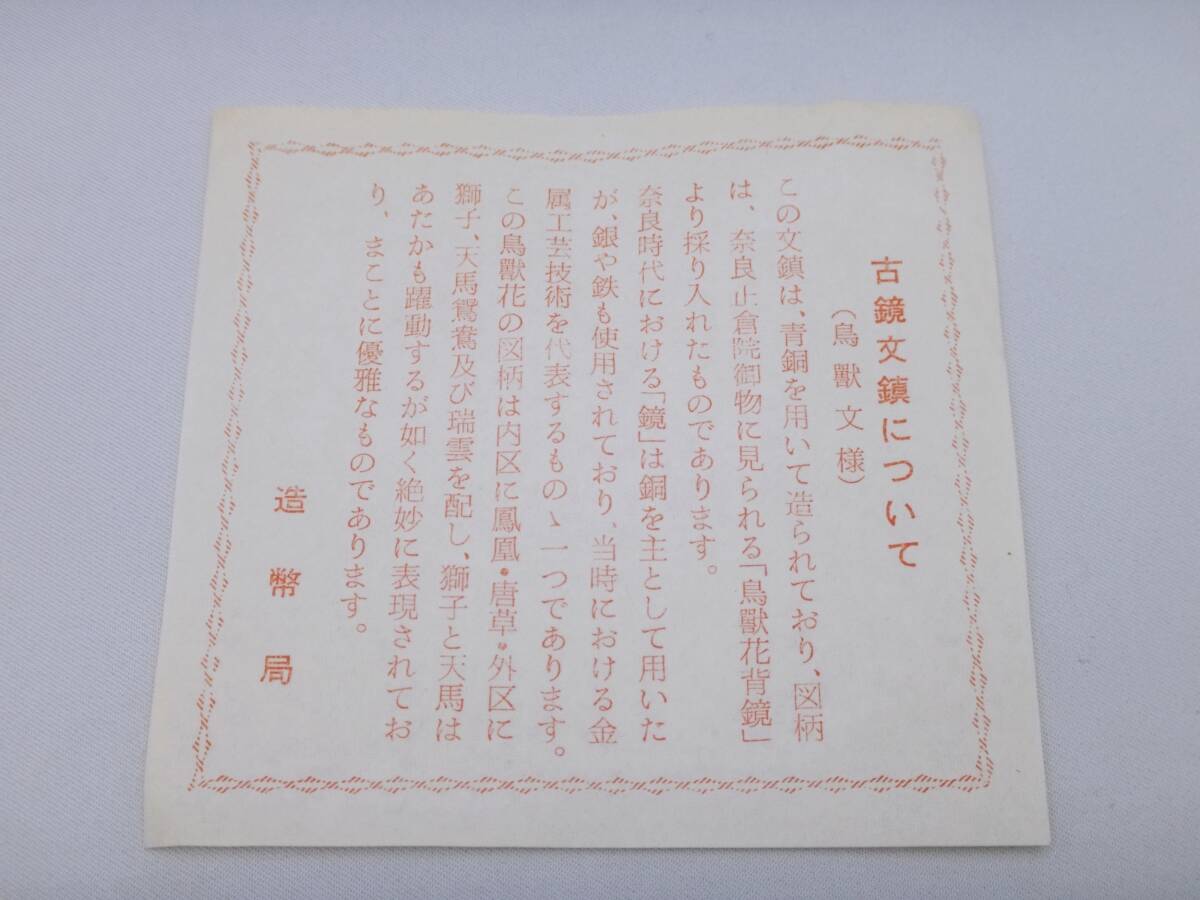 古鏡文鎮について
(鳥獸文様)
この文鎮は、青銅を用いて造られており、図柄
は、奈良正倉院御物に見られる「鳥獸花背鏡」
より採り入れたものであります。
奈良時代における「鏡」は銅を主として用いた
が、銀や鉄も使用されており、当時における金
属工芸技術を代表するものゝ一つであります。
この鳥獸花の図柄は内区に鳳凰・唐草・外区に
獅子、天馬鴛鴦及び瑞雲を配し、獅子と天馬は
あたかも躍動するが如く絶妙に表現されてお
り、まことに優雅なものであります。
造幣局